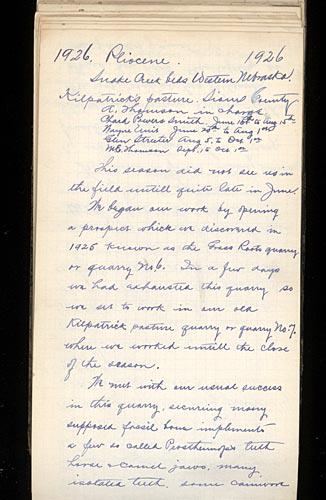 1926. Pliocene. 1926
Snake Creek beds Western Nebraska.
Kilpatrick's pasture, Sioux County
A. Thomson in charge
Chard Powers Smith June 16th to Aug 15th
Wayne Enis June 25th to Aug 1st
Glen Streeter Aug 5, to Oct 1st
M.C. Thomson Sept, 15 Oct 1st
This season did not see us in
the field untill quite late in June.
We began our work by opening
a prospect which we discovered in
1925 known as the Grass Roots quarry
or quarry No 6. In a few days
we had exhausted this quarry so
we set to work in our old
Kilpatrick pasture quarry or quarry No 7.
where we worked untill the close
of the season.
We met with our usual success
in this quarry, securing many
supposed fossil bone implements
a few so called teeth
horse & camel jaws, many
isolated teeth, some carnivore